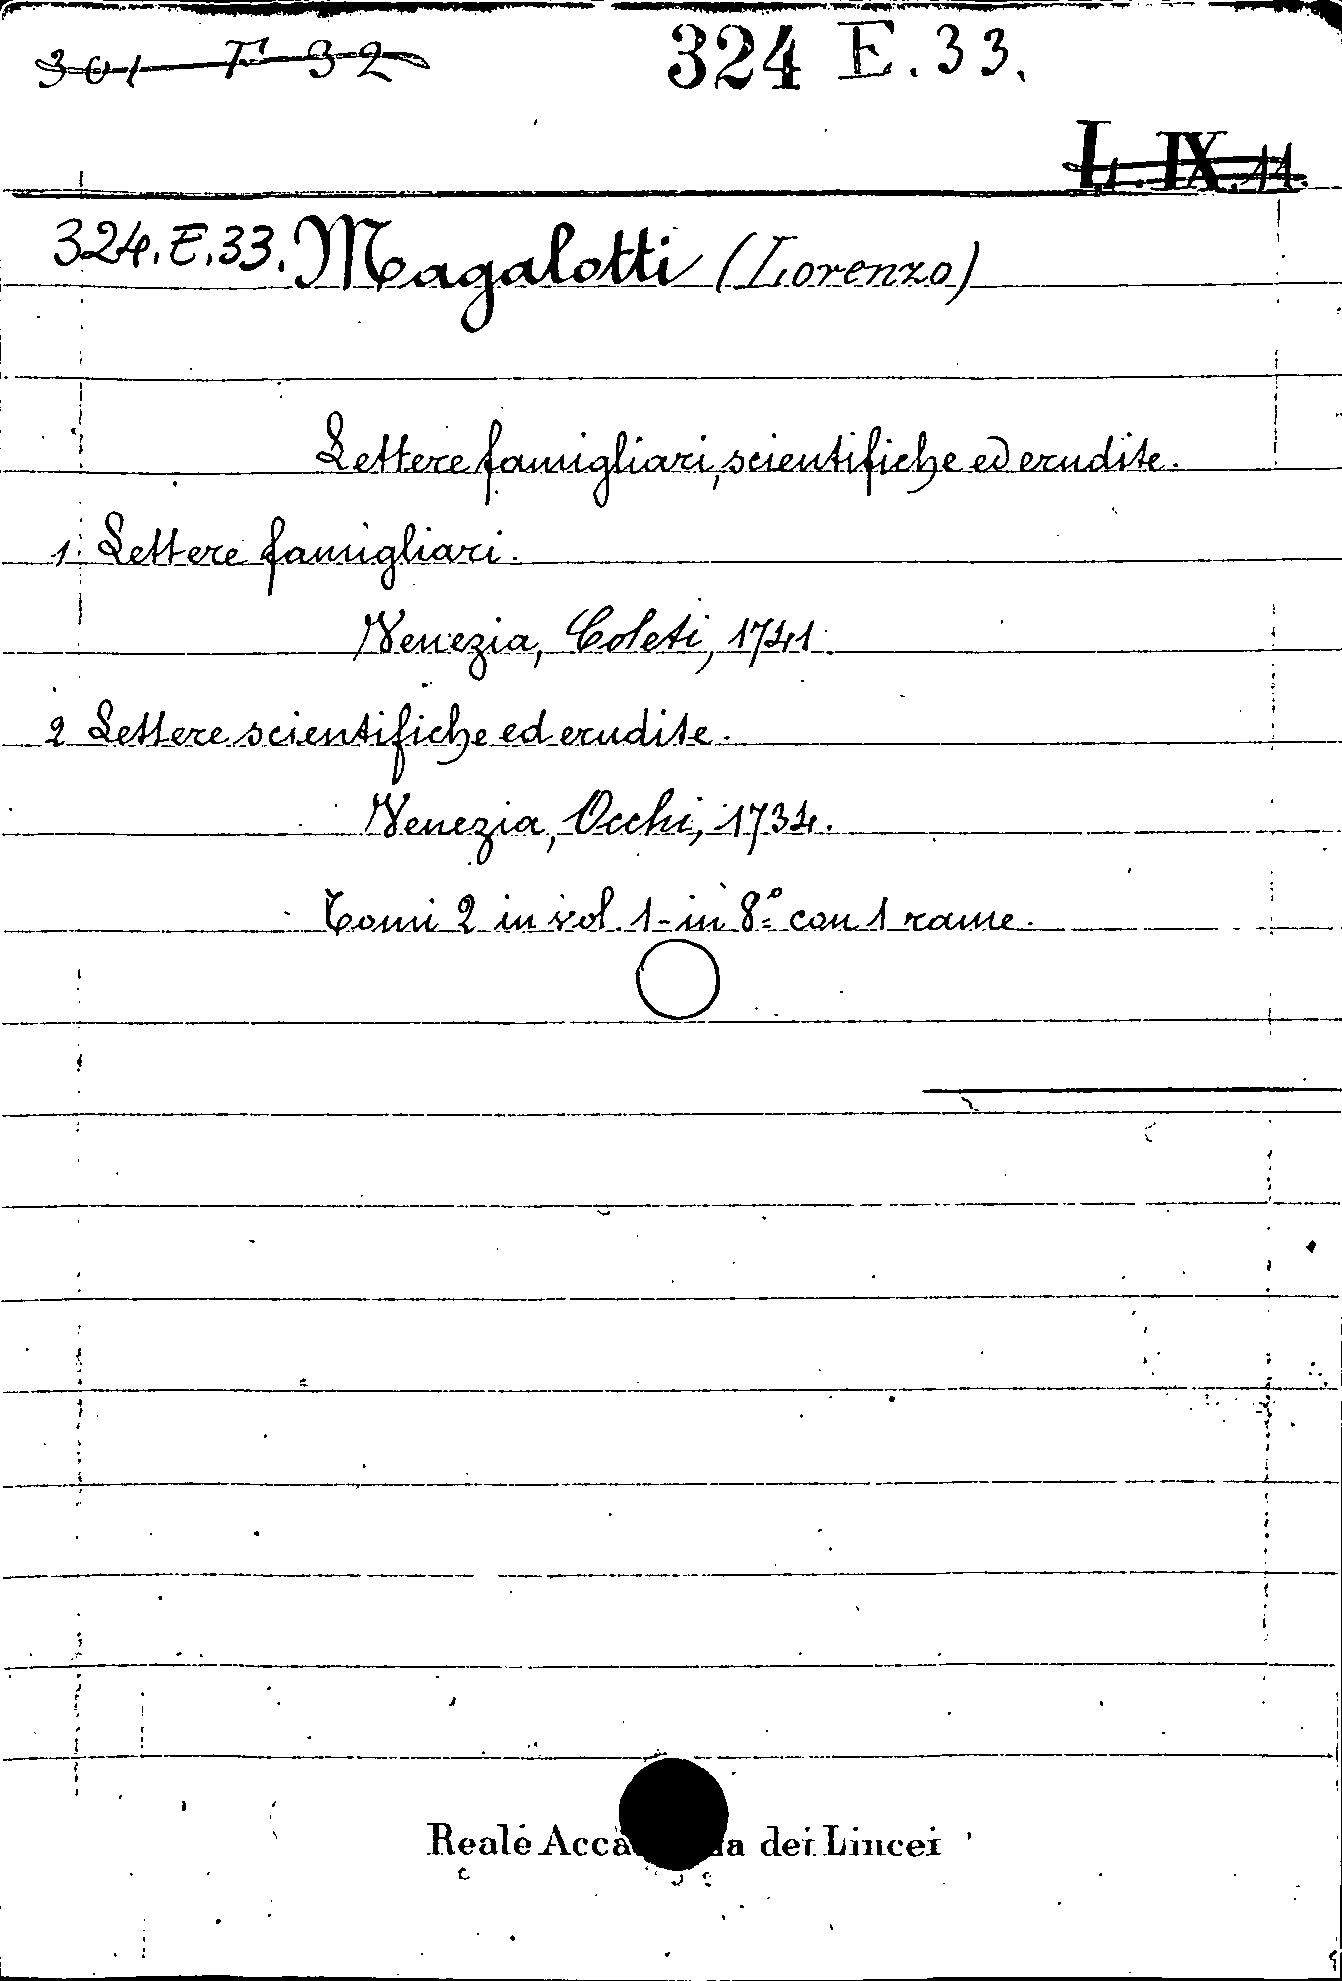 301 F 32 324 E.33.
L.IX.11.
324.E.33. Magalotti (Lorenzo)
Lettere famigliari, scientifiche ed erudite.
1. Lettere famigliari.
Venezia, Coleti, 1741.
2 Lettere scientifiche ed erudite.
Venezia, Occhi, 1734.
Tomi 2 in vol. 1 - in 8.° con 1 rame.
Reale dei Lincei